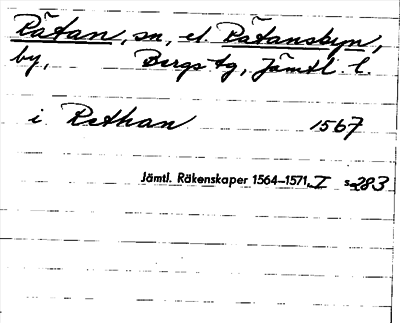 Rätan, sn, el. Rätansbyn,
by, Bergs tg, Jämtl. l.
i Rethan 1567
Jämtl. Räkenskaper 1564–1571, I s. 283